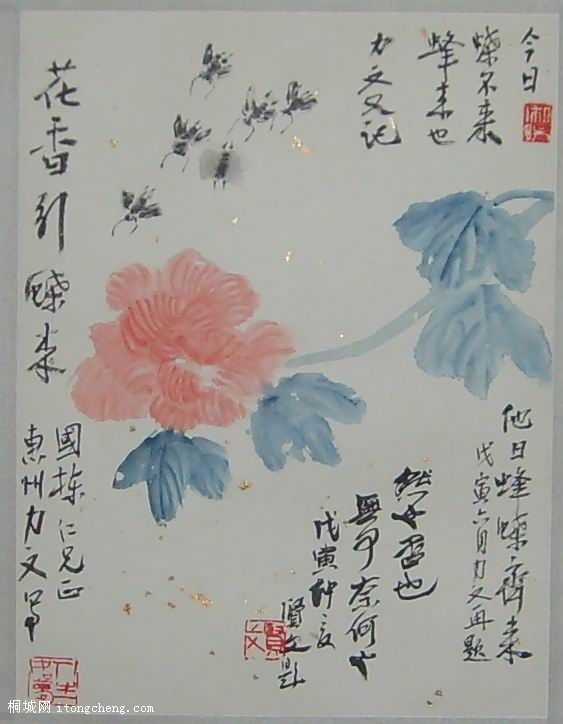 今日
蝶不来
蜂来也
力文又记
花香引蝶来
國栋仁兄正
惠州力文
他日蜂蝶齐来
戊寅六月力文再题
也
無可奈何
戊寅仲夏
贤文题
桐城网 itongcheng.com